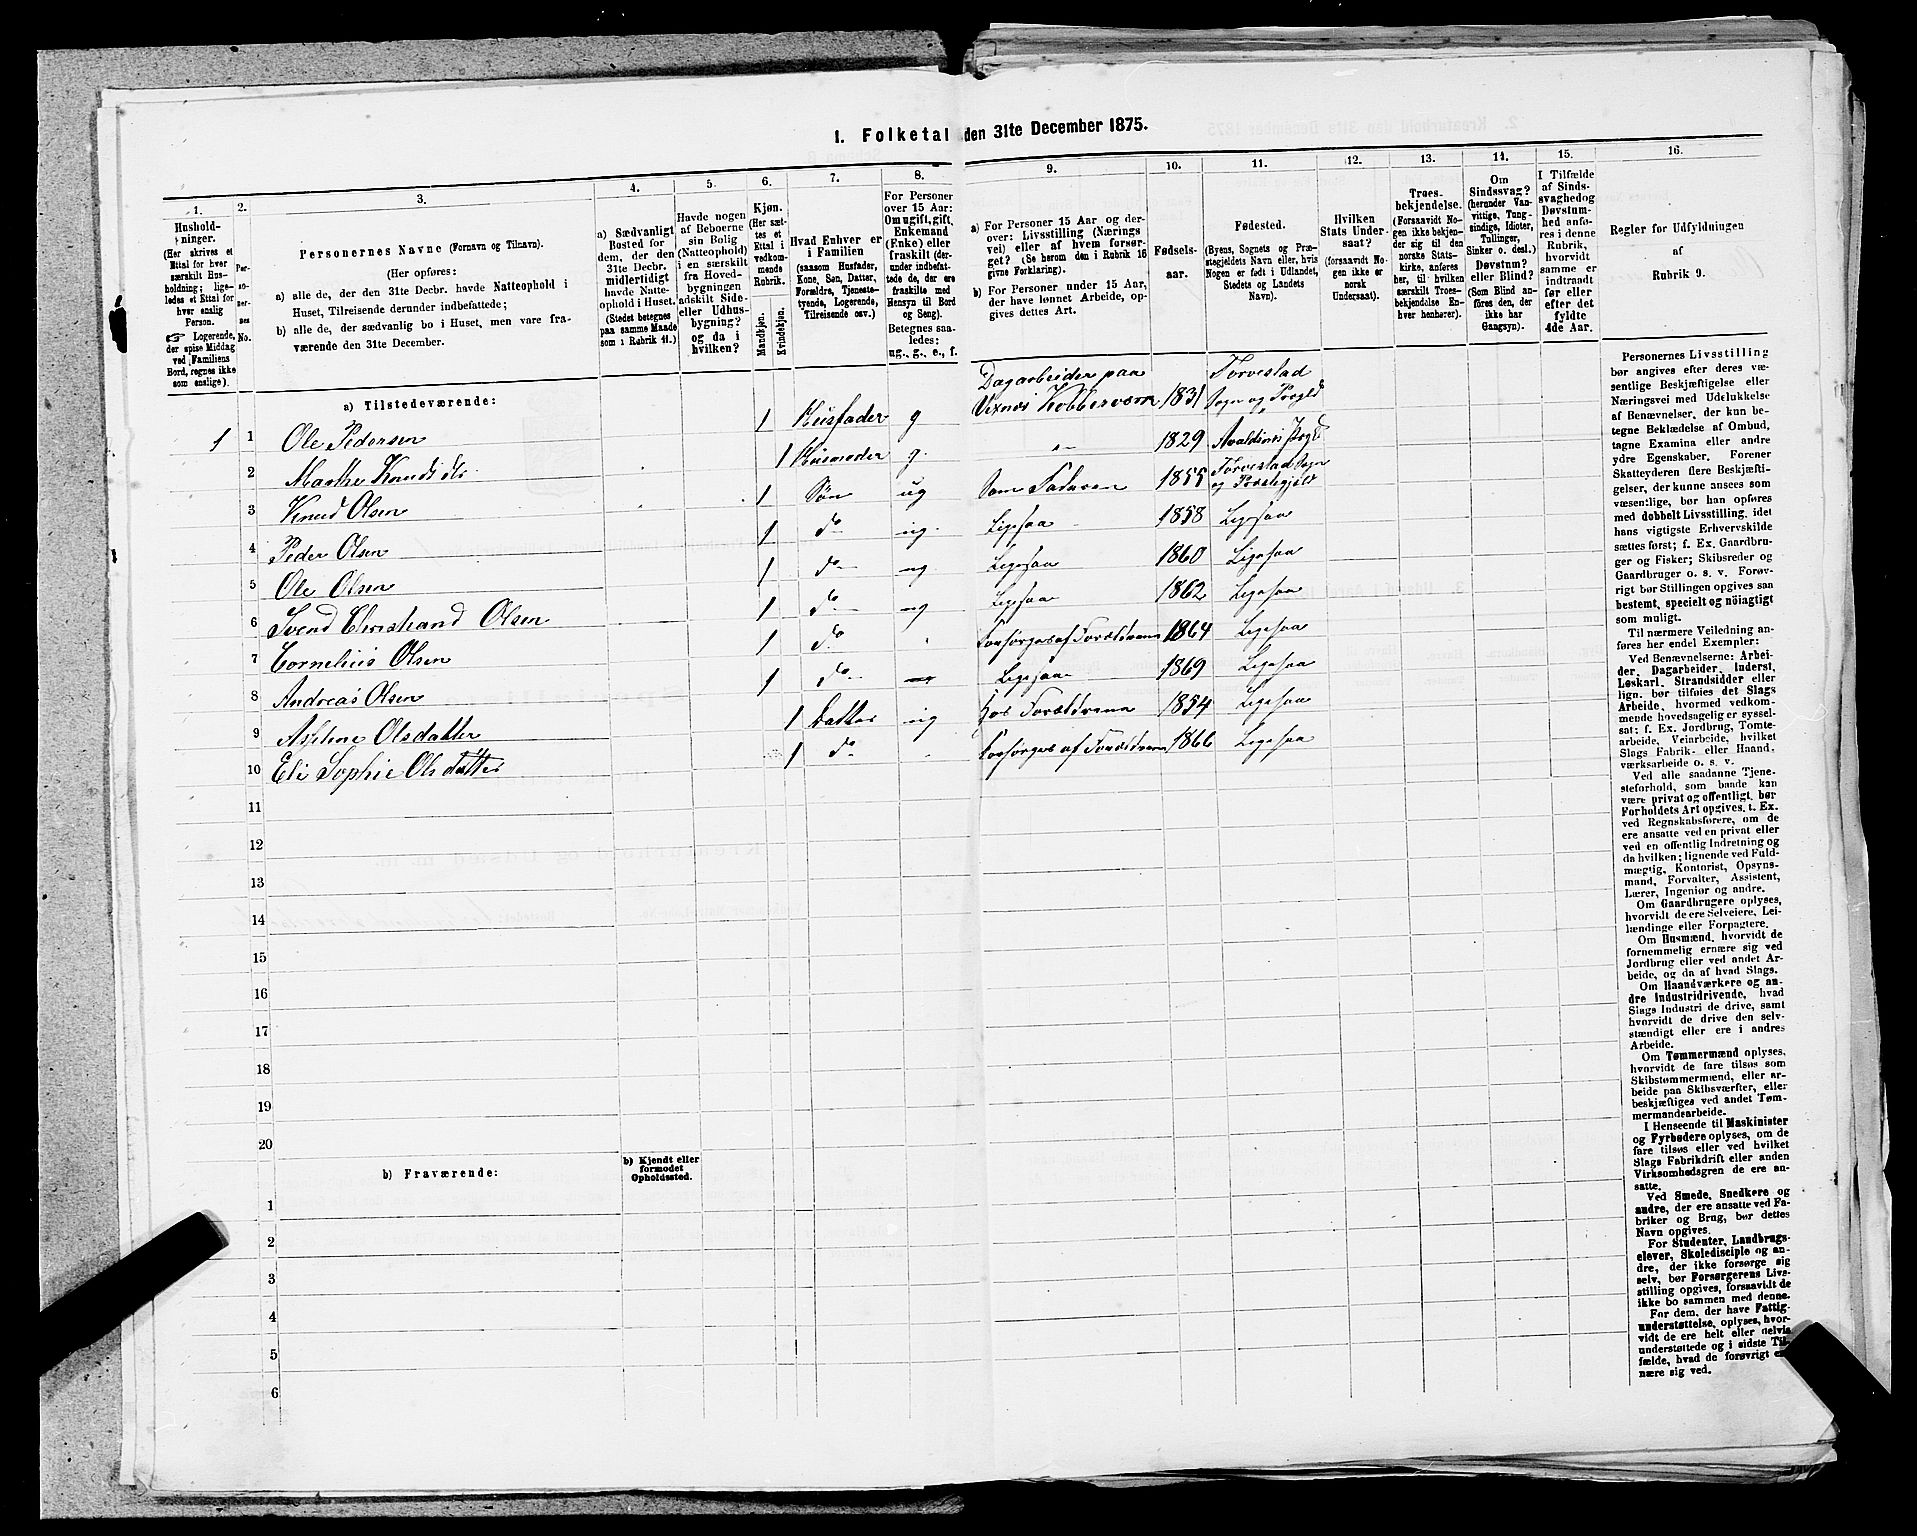 1. Folketal den 31te December 1875.
1.
2.
3.
4.
5.
6.
7.
8.
9.
10.
11.
12.
13.
14.
15.
16.
Hushold-
ninger.
(Her skrives et
Ettal for hver
særskilt Hus-
holdning; lige-
ledes et Ettal for
hver enslig
Person.
☞ Logerende,
der spise Middag
ved Familiens
Bord, regnes ikke
som enslige).
Per-
so-
ner-
nes
No.
Personernes Navne (Fornavn og Tilnavn).
(Her opføres:
a) alle de, der den 31te Decbr. havde Natteophold i
Huset, Tilreisende derunder indbefattede;
b) alle de, der sædvanlig bo i Huset, men vare fra-
værende den 31te December.
a) Sædvanligt
Bosted for
dem, der den
31te Decbr.
midlertidigt
havde Natte-
ophold i Huset.
(Stedet betegnes
paa samme Maade
som i Rubrik 11.)
Havde nogen
af Beboerne
sin Bolig
(Natteophold)
i en særskilt
fra Hoved-
bygningen
adskilt Side-
eller Udhus-
bygning?
og da i
hvilken?
Kjøn.
(Her sæt-
tes et
Ettal i
vedkom-
mende
Rubrik.
Mandkjøn.
Kvindekjøn.
Hvad Enhver er
i Familien
(saasom Husfader,
Kone, Søn, Datter,
Forældre, Tjeneste-
tyende, Logerende,
Tilreisende osv.)
For Personer
over 15 Aar:
Om ugift, gift,
Enkemand
(Enke) eller
fraskilt (der-
under indbefat-
tede de, der ere
fraskilte med
Hensyn til Bord
og Seng).
Betegnes saa-
ledes:
ug., g., e., f.
a) For Personer 15 Aar og der-
over: Livsstilling (Nærings
vei) eller af hvem forsør-
get? (Se herom den i Rubrik 16
givne Forklaring).
b) For Personer under 15 Aar,
der have lønnet Arbeide, op-
gives dettes Art.
Fødsels-
aar.
Fødested.
(Byens, Sognets og Præ-
stegjeldets Navn eller, hvis
Nogen er født i Udlandet,
Stedets og Landets
Navn).
Hvilken
Stats Under-
saat?
(forsaavidt No-
gen ikke er
norsk
Undersaat).
Troes-
bekjendelse.
(Forsaavidt No-
gen ikke bekjen-
der sig til den
norske Stats-
kirke, anføres
her, til hvilken
særskilt Troes-
bekjendelse En-
hver henhører).
Om
Sindssvag?
(herunder Van-
vittige, Tung-
sindige, Idioter,
Tullinger,
Sinker o. desl.)
Døvstum?
eller Blind?
(Som Blind an-
føres den, der
ikke har
Gangsyn).
I Tilfælde
af Sinds-
svaghed og
Døvstum-
hed anfø-
res i denne
Rubrik,
hvorvidt
samme er
indtraadt
før eller
efter det
fyldte
4de Aar.
Regler for Udfyldningen
af
Rubrik 9.
a) Tilstedeværende:
1 1 Ole Pedersen 1 Husfader g Dagarbeider paa Vixnes Kobberværk 1831 Torvestad Sogn og Prgld
2 Marthe Knudsdtr 1 Husmoder g. „ 1829 Avaldsnes Prgld
3 Knud Olsen 1 Søn ug Som Faderen 1855 Torvestad Sogn og Præstegjeld
4 Peder Olsen 1 do ug. Ligesaa 1858 Ligesaa
5 Ole Olsen 1 do ug Ligesaa 1860 Ligesaa
6 Svend Christiand Olsen 1 do ug Ligesaa 1862 Ligesaa
7 Cornelius Olsen 1 do Forsørges af Forældrene 1864 Ligesaa
8 Andreas Olsen 1 do Ligesaa 1869 Ligesaa
9 Olsdatter 1 Datter ug Hos Forældrene 1854 Ligesaa
10 Eli Sophie Olsdatter 1 do Forsørges af Forældrene 1866 Ligesaa
11
12
13
14
15
16
17
18
19
20
b) Fraværende:
b) Kjendt eller
formodet
Opholdssted.
1
2
3
4
5
6
Personernes Livsstilling
bør angives efter deres væ-
sentlige Beskjæftigelse eller
Næringsvei med Udelukkelse
af Benævnelser, der kun be-
tegne Beklædelse af Ombud,
tagne Examina eller andre
ydre Egenskaber. Forener
Skatteyderen flere Beskjæfti-
gelser, der kunne ansees som
væsentlige, bør han opføres
med dobbelt Livsstilling, idet
hans vigtigste Erhvervskilde
sættes først; f. Ex. Gaardbru-
ger og Fisker; Skibsreder og
Gaardbruger o. s. v. Forøv-
rigt bør Stillingen opgives saa
bestemt, specielt og nöiagtigt
som muligt.
Til nærmere Veiledning an-
føres her endel Exempler:
Ved Benævnelserne: Arbei-
der, Dagarbeider, Inderst,
Løskarl, Strandsidder eller
lign. bør tilføies det Slags
Arbeide, hvormed vedkom-
mende hovedsagelig er syssel-
sat; f. Ex. Jordbrug, Tomte-
arbeide, Veiarbeide, hvilket
Slags Fabrik- eller Haand-
værksarbeide o. s. v.
Ved alle saadanne Tjene-
steforhold, som baade kan
være privat og offentligt, bør
Forholdets Art opgives, t. Ex.
ved Regnskabsførere, om de
ere ansatte ved en privat eller
ved en offentlig Indretning og
da hvilken; lignende ved Fuld-
mægtig, Kontorist, Opsyns-
mand, Forvalter, Assistent,
Lærer, Ingeniør og andre.
Om Gaardbrugere oplyses,
hvorvidt de ere Selveiere, Lei-
lændinge eller Forpagtere.
Om Husmænd, hvorvidt de
fornemmelig ernære sig ved
Jordbrug eller ved andet Ar-
beide, og da af hvad Slags.
Om Haandværkere og an-
dre Industridrivende, hvad
Slags Industri de drive, samt
hvorvidt de drive den selv-
stændigt eller ere i andres
Arbeide.
Om Tømmermænd oplyses,
hvorvidt de fare tilsøs som
Skibstømmermænd, eller ar-
beide paa Skibsværfter, eller
beskjæftiges ved andet Tøm-
mermandsarbeide.
I Henseende til Maskinister
og Fyrbødere oplyses, om de
fare tilsøs eller ved hvilket
Slags Fabrikdrift eller anden
Virksomhedsgren de ere an-
satte.
Ved Smede, Snedkere og
andre, der ere ansatte ved Fa-
briker og Brug, bør dettes
Navn opgives.
For Studenter, Landbrugs-
elever, Skoledisciple og an-
dre, der ikke forsørge sig
selv, bør Forsørgerens Livs-
stilling opgives, forsaavidt de
ikke bo sammen med denne.
For dem, der have Fattig-
understøttelse, oplyses, hvor-
vidt de ere helt eller delvis
understøttede og i sidste Til-
fælde, hvad de forøvrigt er-
nære sig ved.